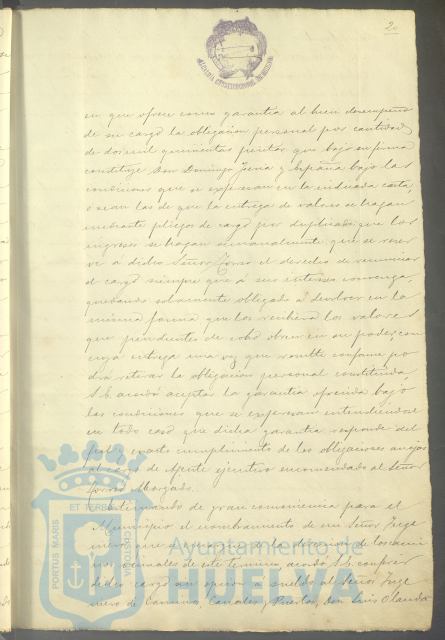 20
ALCALDÍA CONSTITUCIONAL DE HUELVA
en que ofrece como garantía al buen desempeño
de su cargo la obligacion personal por cantidad
de dos mil quinientas pesetas que bajo su firma
constituye Don Domingo y España bajo las
condiciones que se expresan en la indicada carta,
o sean las de que la entrega de valores se hagan
mediante pliegos de cargo por duplicado; que los
ingresos se hagan semanalmente, que se reser
ve á dicho Señor el derecho de renunciar
el cargo siempre que á sus intereses convenga,
quedando solamente obligado á devolver en la
misma forma que los recibiera los valores
que pendientes de cobro obren en su poder, con
cuya entrega una vez que resulte conforme po
drá retirar la obligacion personal constituida,
S. E. acordó aceptar la garantía ofrecida bajo
las condiciones que se expresan entendiendose
en todo caso que dicha garantía responde del
fiel y exacto cumplimiento de las obligaciones anejas
al cargo de Agente ejecutivo encomendado al Señor
Morgado.
Estimando de gran conveniencia para el
Municipio el nombramiento de un Señor Inge
niero que se encargue de la direccion de los cami
nos vecinales de este término, acordó S. E. conferir
dicho cargo sin opcion á sueldo al Señor Inge
niero de Caminos, Canales y Puertos, Don Luis Olanda
PORTUS MARIS
ET TERRAE
CUSTODIA
Ayuntamiento de
HUELVA